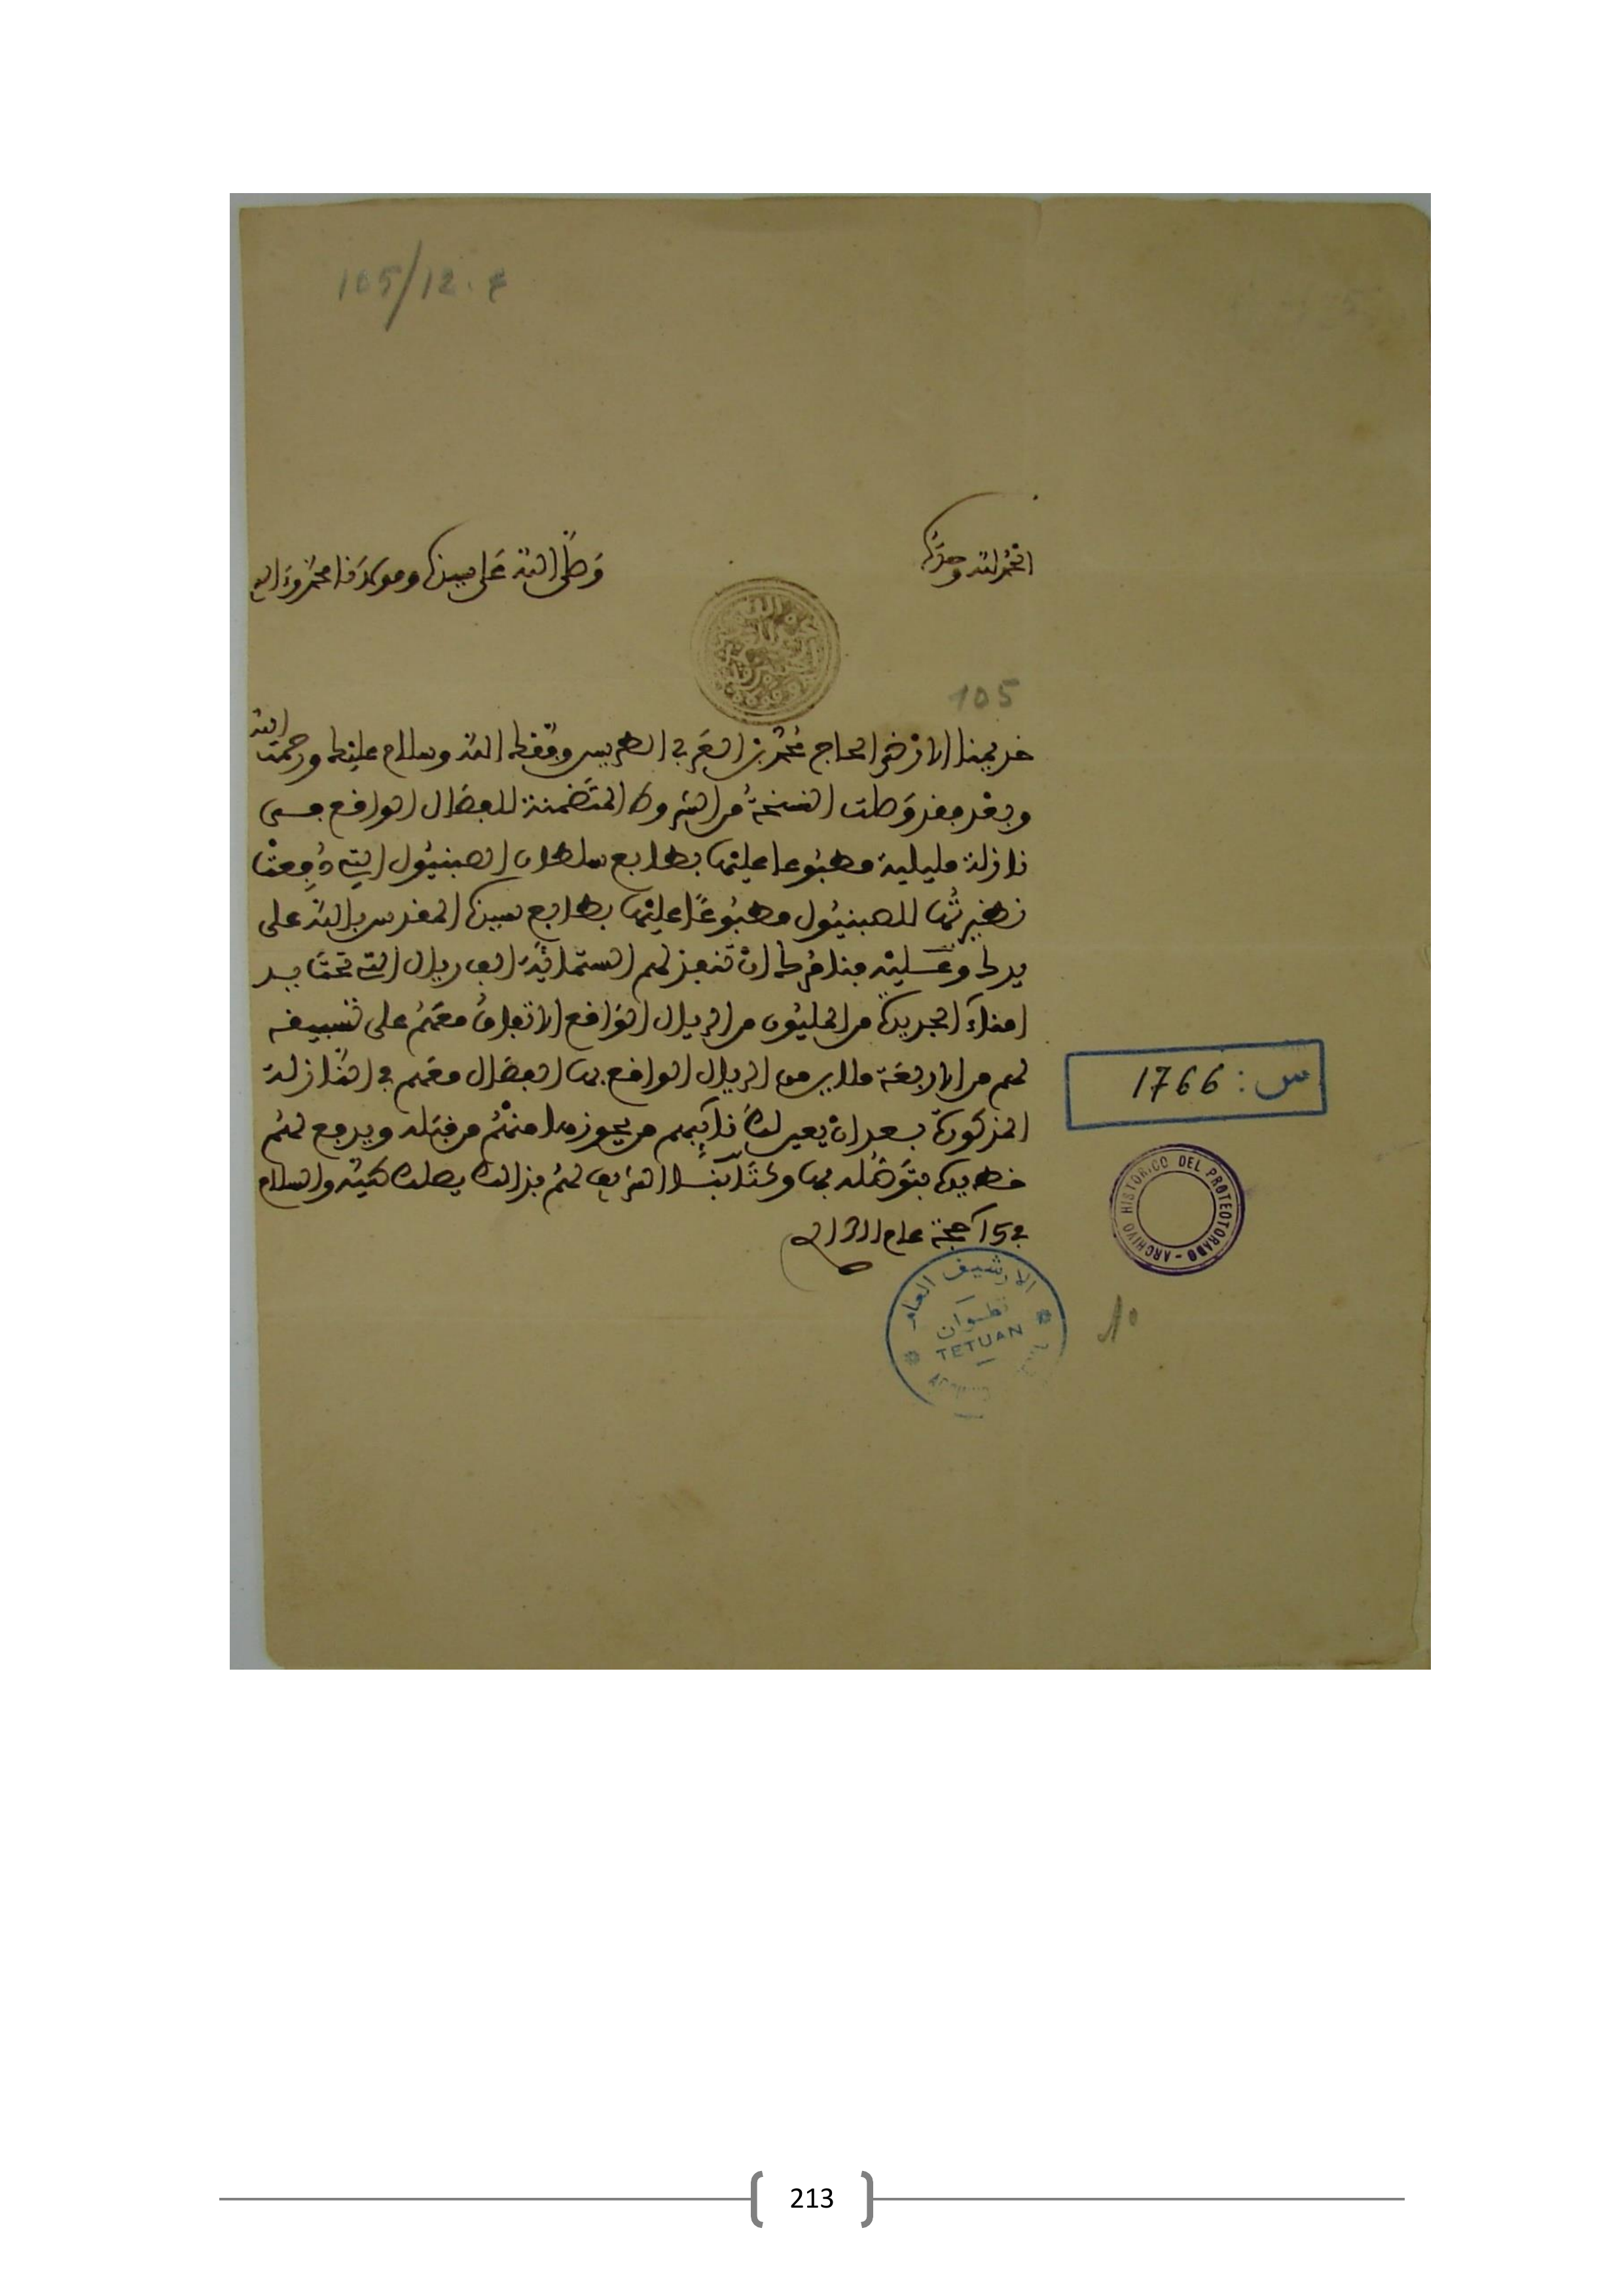 105/12.4
الحمد لله وحده
وصلى الله على سيدنا ومولانا محمد وءاله
105
خديمنا الارضى الحاج محمد بن العربي الطريس وفقك الله وسلام عليك ورحمت الله
وبعد فقد وصلت النسخة من الشروط المتضمنة للفصال الواقع في
نازلة مليلية مطبوعا عليها بطابع سلطان الصبنيول التي دفعت
نظيرتها للصبنيول مطبوعا عليها بطابع سيدنا المقدس بالله على
يدك وعليه فنامرك ان تنفذ لهم الستمائة الف ريال التي تحت يد
امناء الجديدة من المليون من الريال الواقع الاتفاق معهم على تسبيقه
لهم من الاربعة ملاين من الريال الواقع بها الفصال معهم في النازلة
المذكورة بعد ان يعين لك نائبهم من يحوزها منهم من قبله ويدفع لهم
خط يده بتوصله بها وكتابنا الشريف لهم بذلك يصلك طيه والسلام
في 15 حجة عام 1311
س : 1766
ARCHIVO HISTORICO DEL PROTECTORADO
الارشيف العام
تطوان
TETUAN
10
213